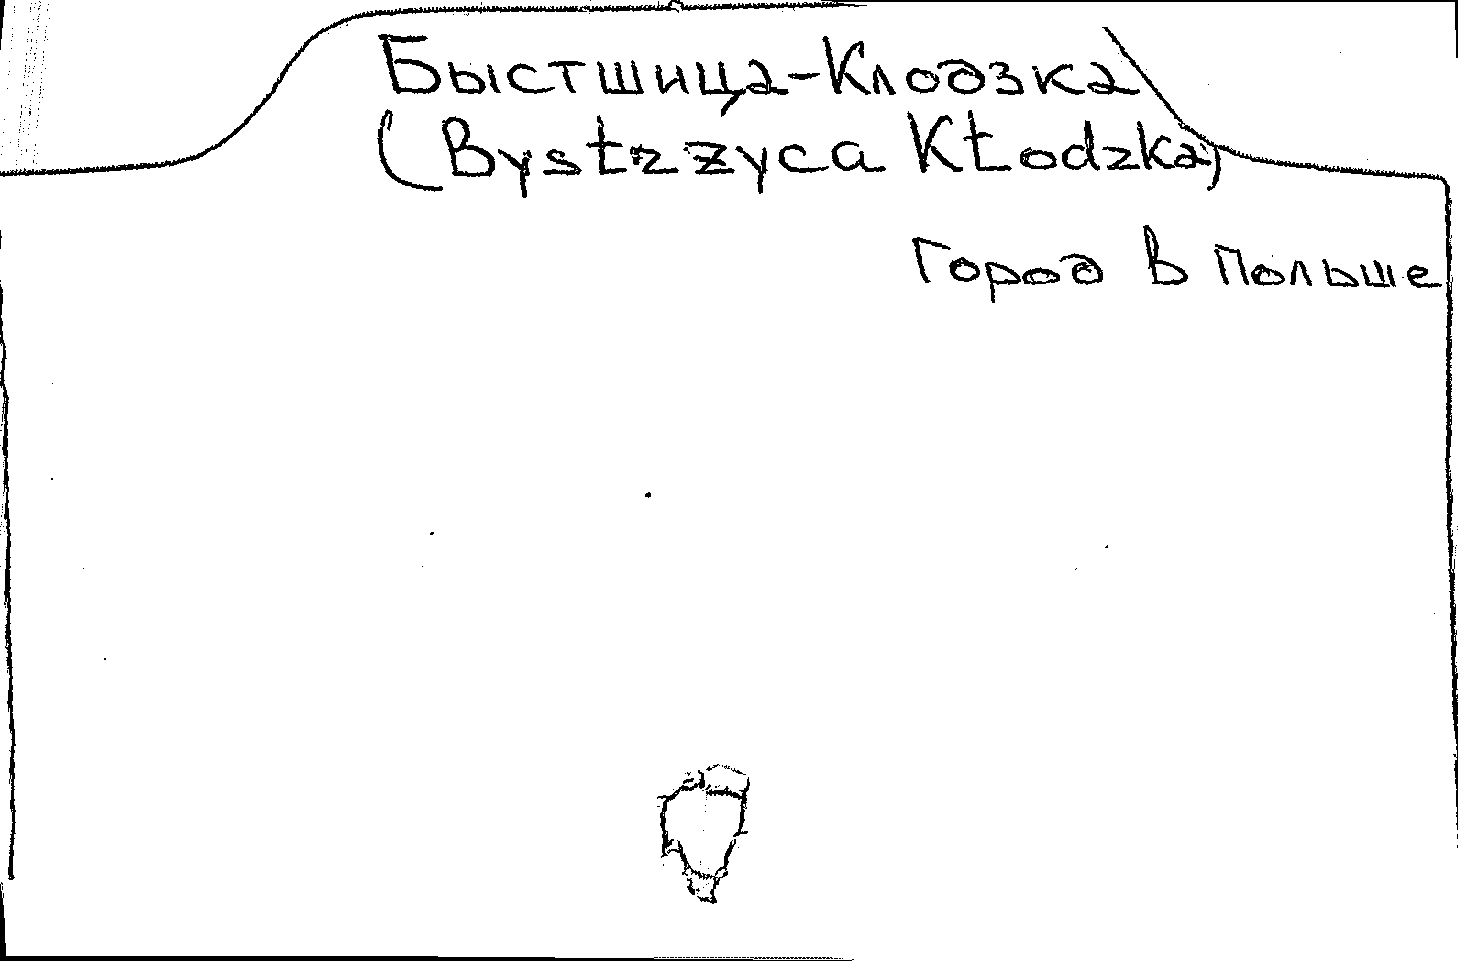 Быстшица-Клодзка
(Bystrzyca Kłodzka)
Город в Польше